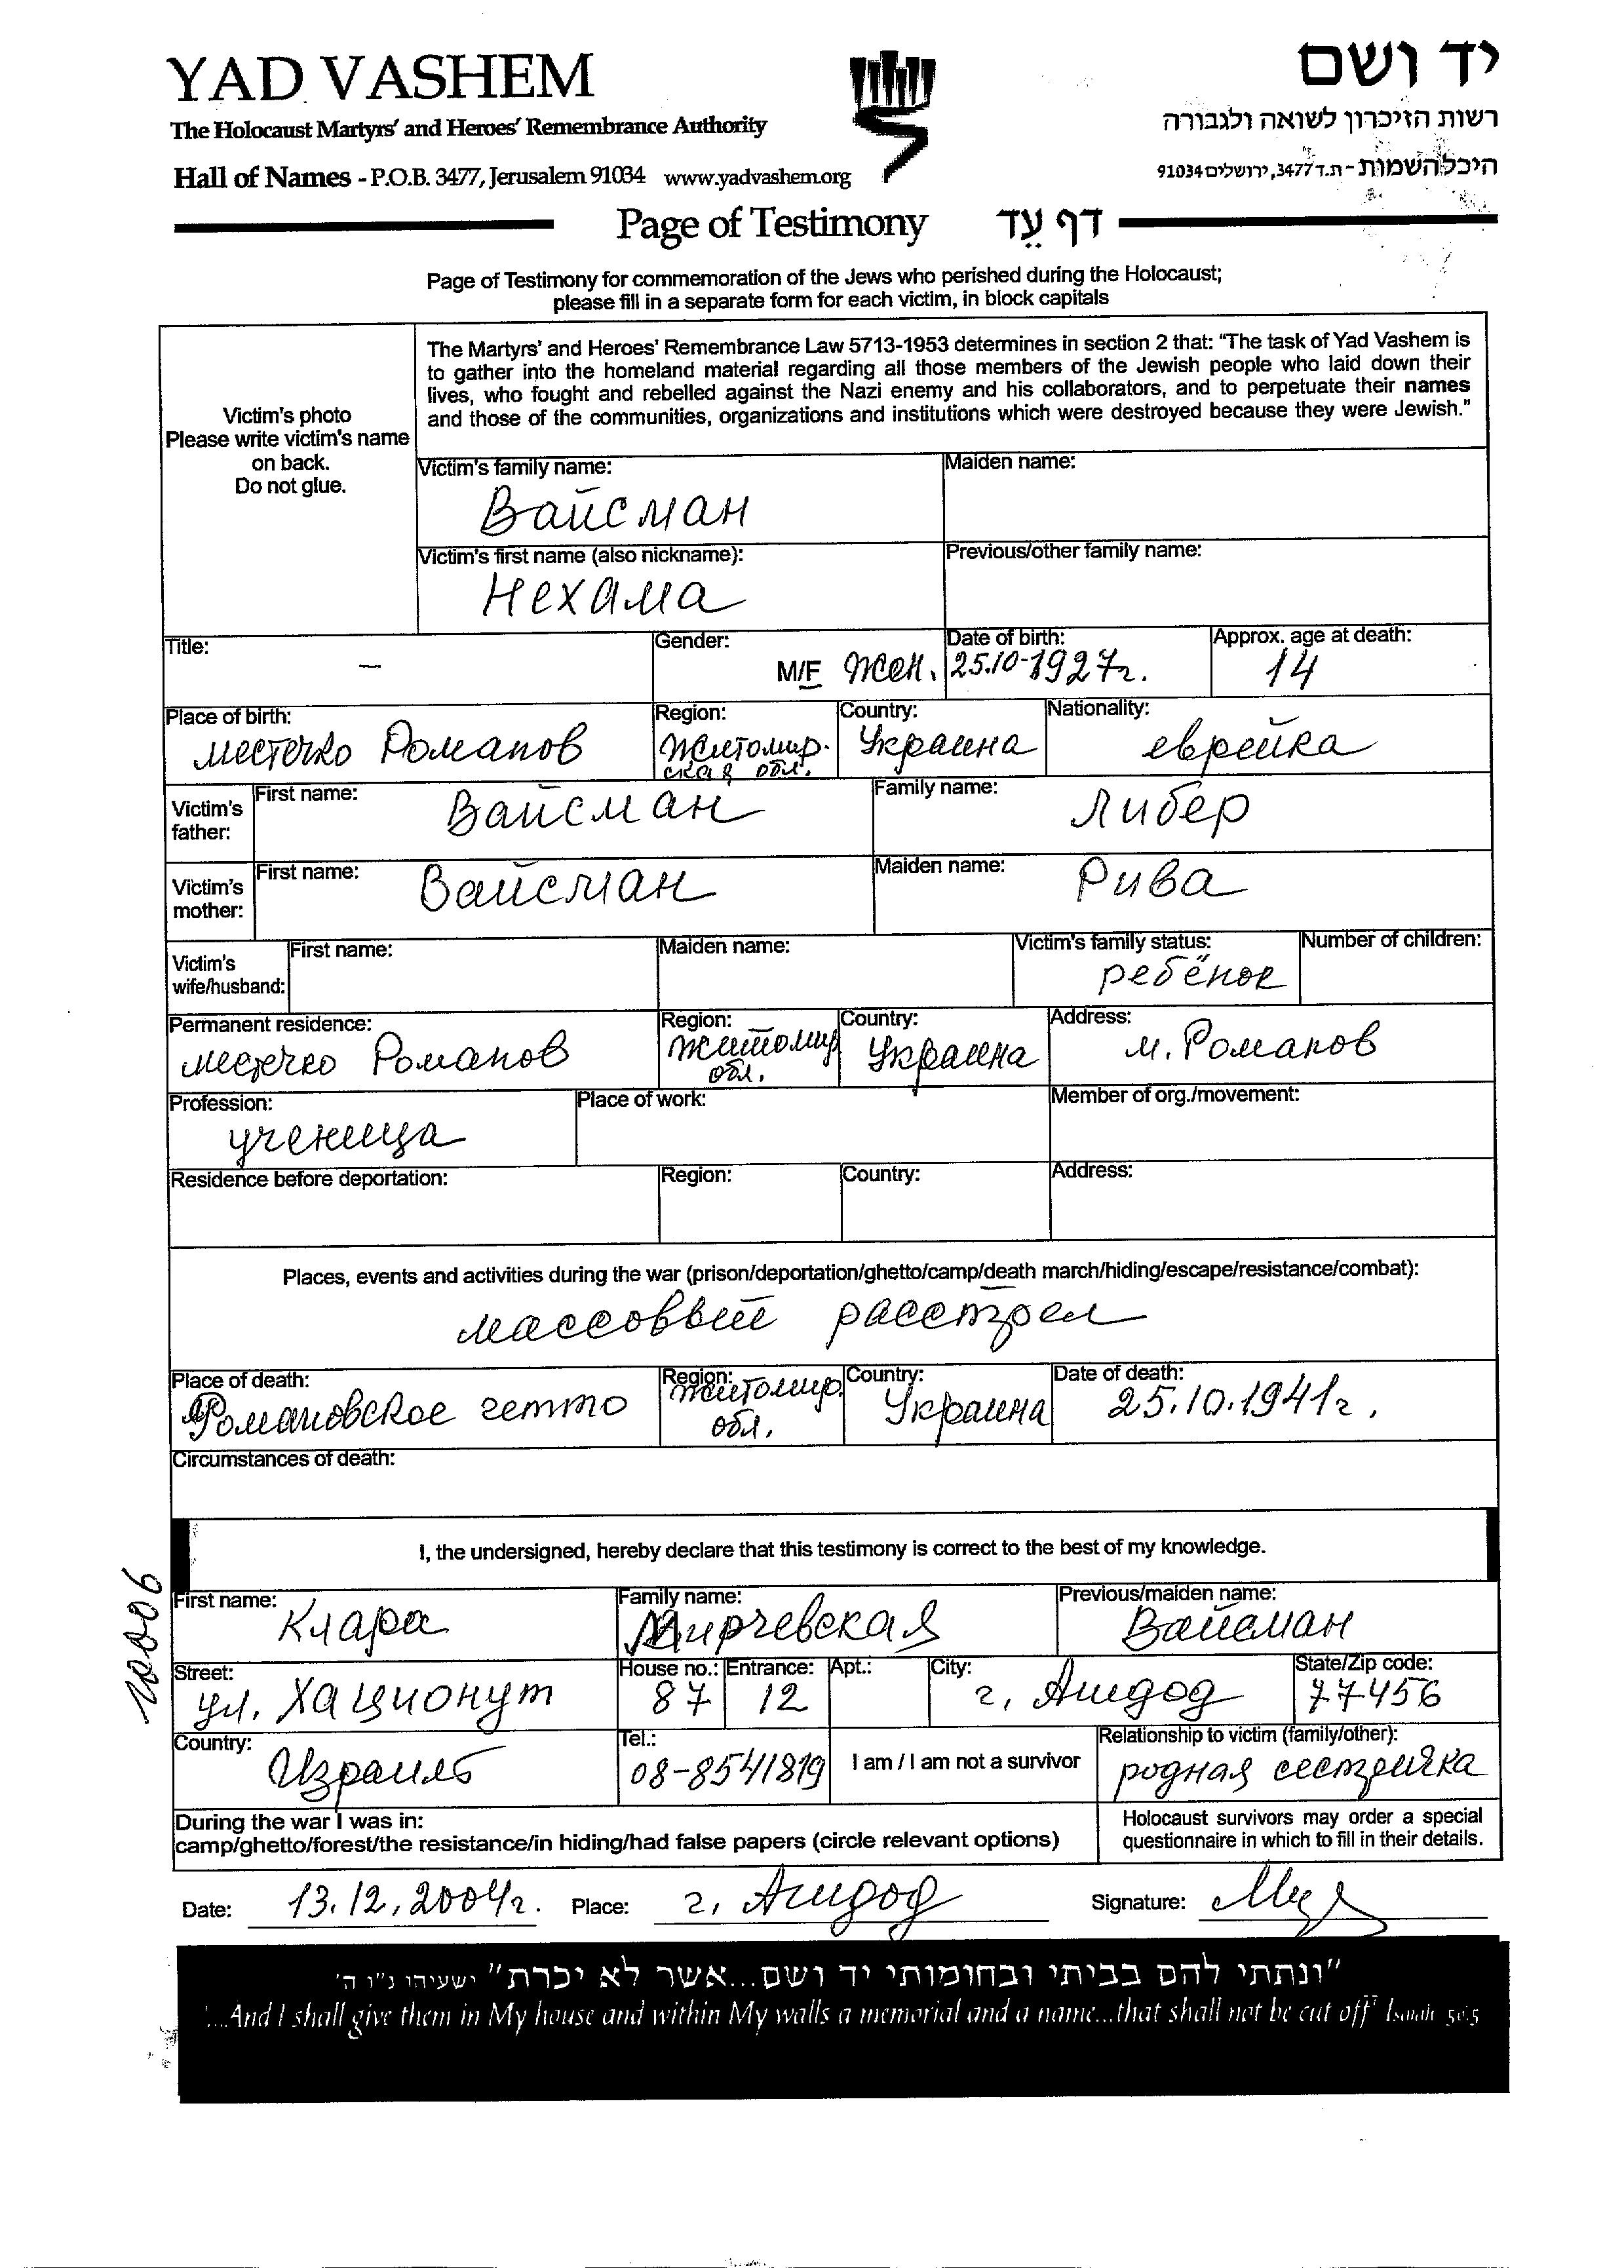 YAD VASHEM
יד ושם
The Holocaust Martyrs' and Heroes' Remembrance Authority
רשות הזיכרון לשואה ולגבורה
Hall of Names - P.O.B. 3477, Jerusalem 91034 www.yadvashem.org
היכל השמות - ת.ד 3477, ירושלים 91034
Page of Testimony דף עֵד
Page of Testimony for commemoration of the Jews who perished during the Holocaust;
please fill in a separate form for each victim, in block capitals
Victim's photo
Please write victim's name
on back.
Do not glue.
The Martyrs' and Heroes' Remembrance Law 5713-1953 determines in section 2 that: "The task of Yad Vashem is
to gather into the homeland material regarding all those members of the Jewish people who laid down their
lives, who fought and rebelled against the Nazi enemy and his collaborators, and to perpetuate their names
and those of the communities, organizations and institutions which were destroyed because they were Jewish."
Victim's family name: Maiden name:
Вайсман
Victim's first name (also nickname): Previous/other family name:
Нехама
Title: Gender: Date of birth: Approx. age at death:
– M/F жен. 25.10-1927г. 14
Place of birth: Region: Country: Nationality:
местечко Романов Житомир- Украина еврейка
ская обл.
Victim's father: First name: Вайсман Family name: Либер
Victim's mother: First name: Вайсман Maiden name: Рива
Victim's wife/husband: First name: Maiden name: Victim's family status: Number of children:
ребёнок
Permanent residence: Region: Country: Address:
местечко Романов Житомир Украина м. Романов
обл.
Profession: Place of work: Member of org./movement:
ученица
Residence before deportation: Region: Country: Address:
Places, events and activities during the war (prison/deportation/ghetto/camp/death march/hiding/escape/resistance/combat):
массовый расстрел
Place of death: Region: Country: Date of death:
Романовское гетто Житомир. Украина 25.10.1941г.
обл.
Circumstances of death:
I, the undersigned, hereby declare that this testimony is correct to the best of my knowledge.
First name: Family name: Previous/maiden name:
Клара Мирчевская Вайсман
Street: House no.: Entrance: Apt.: City: State/Zip code:
ул. Хационут 87 12 г. Ашдод 77456
Country: Tel.: Relationship to victim (family/other):
Израиль 08-8541819 I am / I am not a survivor родная сестричка
During the war I was in:
camp/ghetto/forest/the resistance/in hiding/had false papers (circle relevant options)
Holocaust survivors may order a special
questionnaire in which to fill in their details.
Date: 13.12.2004г. Place: г. Ашдод Signature:
"ונתתי להם בביתי ובחומותי יד ושם...אשר לא יכרת" ישעיהו נ"ו ה'
"...And I shall give them in My house and within My walls a memorial and a name...that shall not be cut off" Isaiah 56:5